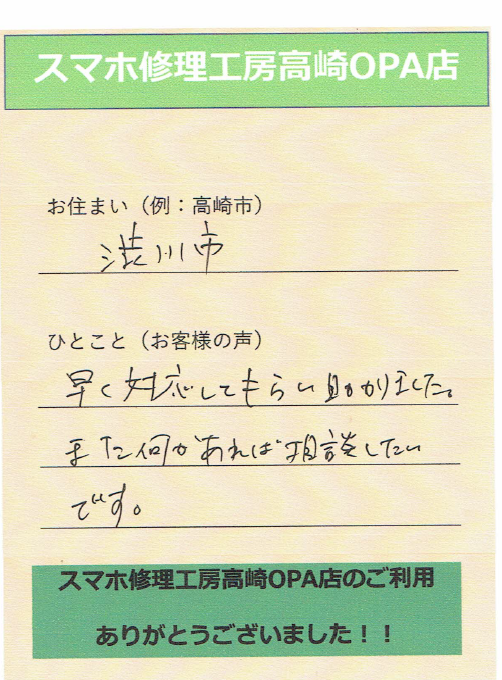 スマホ修理工房高崎OPA店
お住まい（例：高崎市）
渋川市
ひとこと（お客様の声）
早く対応してもらい助かりました。
また何かあれば相談したい
です。
スマホ修理工房高崎OPA店のご利用
ありがとうございました！！